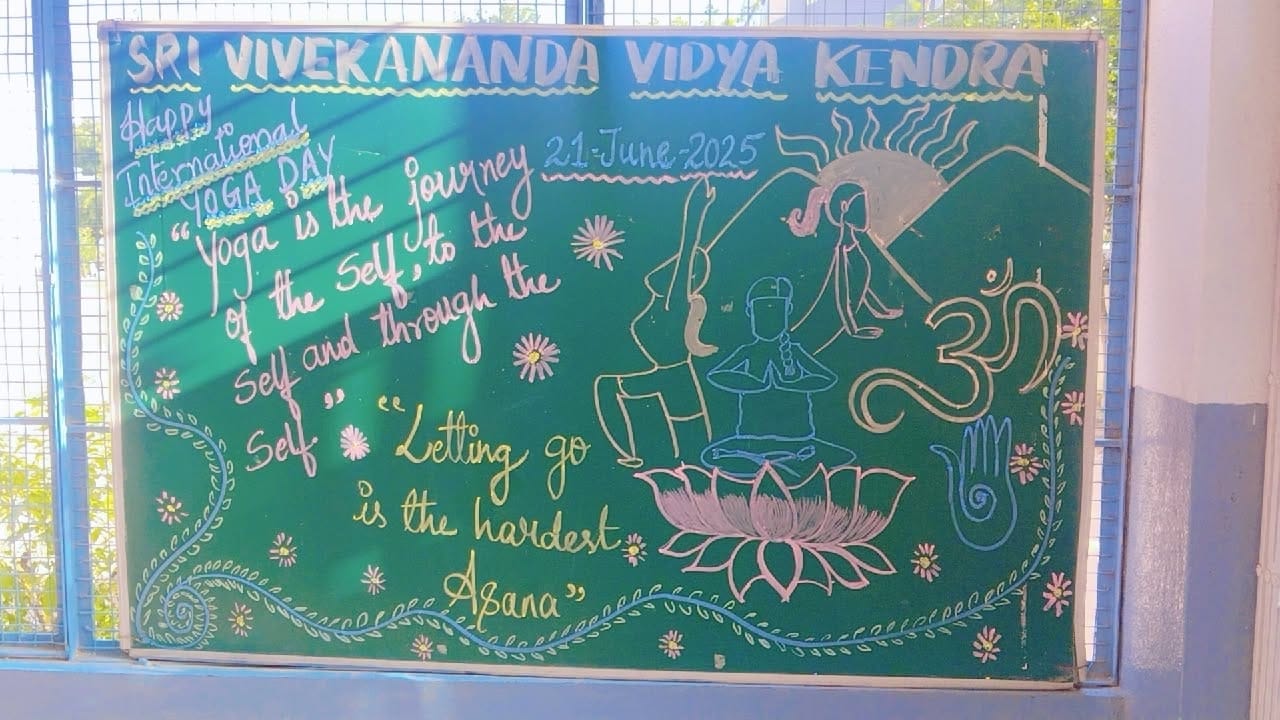 SRI VIVEKANANDA VIDYA KENDRA
Happy
International
YOGA DAY
21-June-2025
"Yoga is the journey
of the Self, to the
Self and through the
Self"
"Letting go
is the hardest
Asana"
ॐ